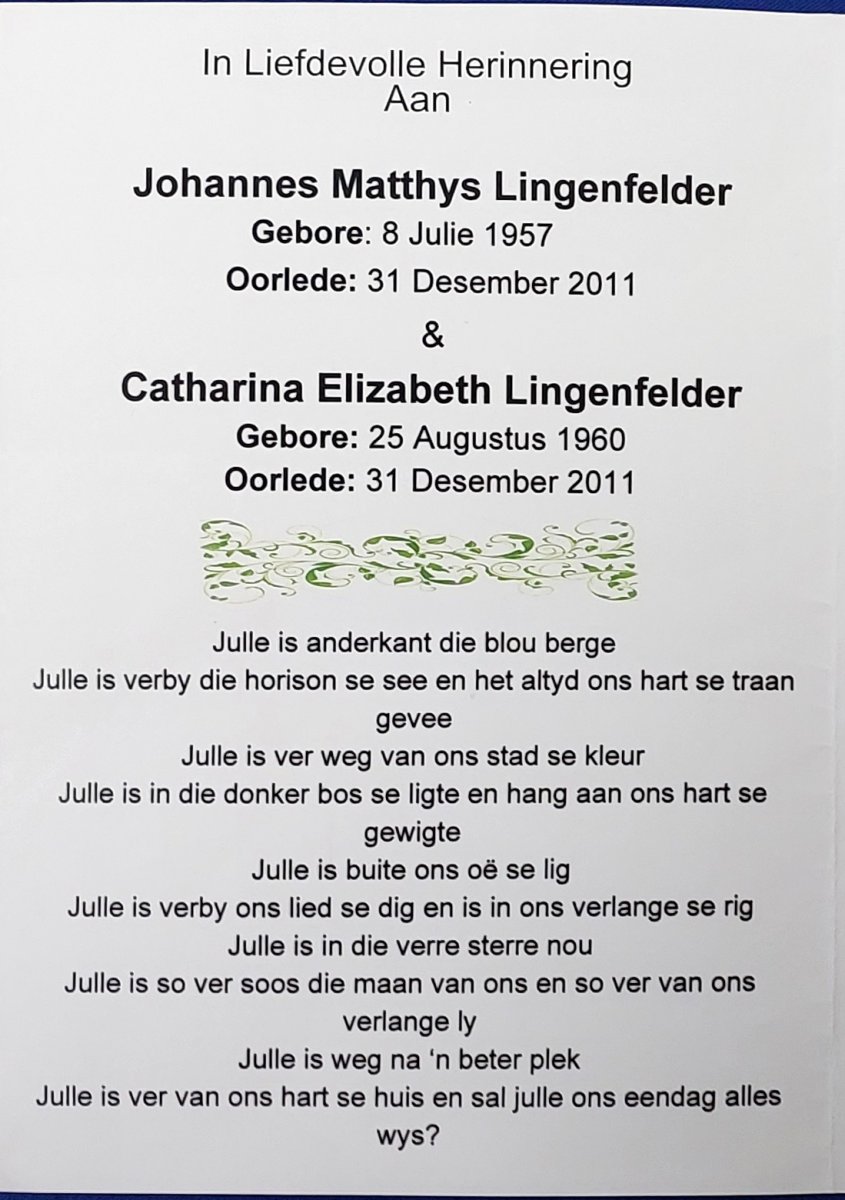 In Liefdevolle Herinnering
Aan
Johannes Matthys Lingenfelder
Gebore: 8 Julie 1957
Oorlede: 31 Desember 2011
&
Catharina Elizabeth Lingenfelder
Gebore: 25 Augustus 1960
Oorlede: 31 Desember 2011
Julle is anderkant die blou berge
Julle is verby die horison se see en het altyd ons hart se traan
gevee
Julle is ver weg van ons stad se kleur
Julle is in die donker bos se ligte en hang aan ons hart se
gewigte
Julle is buite ons oë se lig
Julle is verby ons lied se dig en is in ons verlange se rig
Julle is in die verre sterre nou
Julle is so ver soos die maan van ons en so ver van ons
verlange ly
Julle is weg na ‘n beter plek
Julle is ver van ons hart se huis en sal julle ons eendag alles
wys?